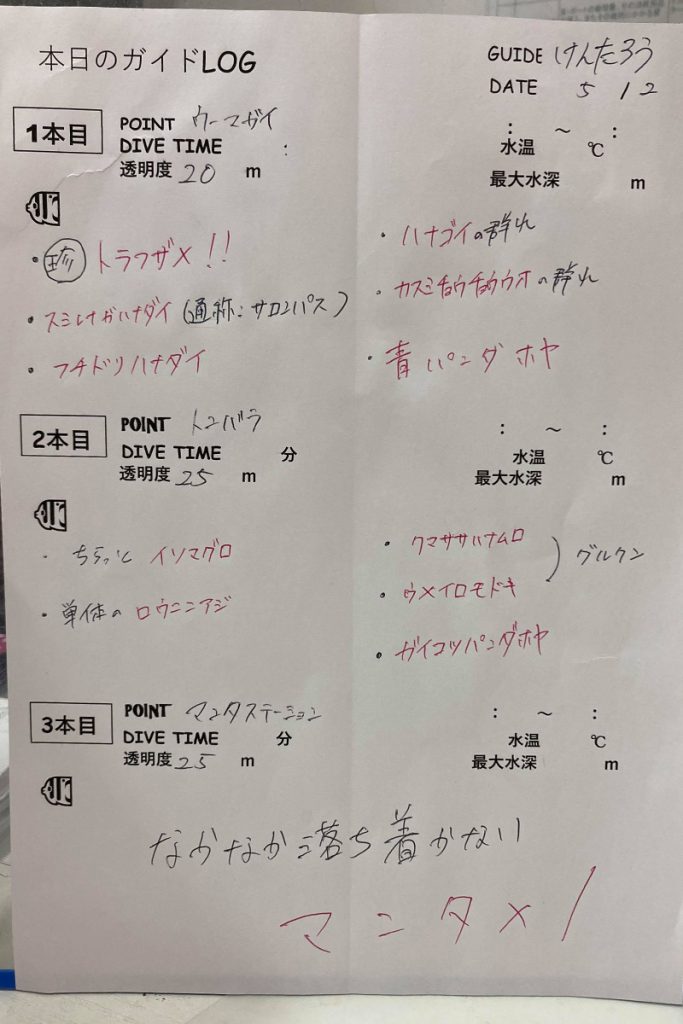 本日のガイドLOG
GUIDE けんたろう
DATE 5 12
1本目
POINT ウーマガイ
DIVE TIME :
: ~ :
透明度 20 m
水温 ℃
最大水深 m
・珍 トラフザメ!!
・スミレナガハナダイ(通称:サロンパス)
・フチドリハナダイ
・ハナゴイの群れ
・カスミチョウチョウウオの群れ
・青パンダホヤ
2本目
POINT トンバラ
DIVE TIME 分
: ~ :
透明度 25 m
水温 ℃
最大水深 m
・ちらっと イソマグロ
・単体の ロウニンアジ
・クマササハナムロ
・ウメイロモドキ
) グルクン
・ガイコツパンダホヤ
3本目
POINT マンタステーション
DIVE TIME 分
: ~ :
透明度 25 m
水温 ℃
最大水深 m
なかなか落ち着かない
マンタ×1